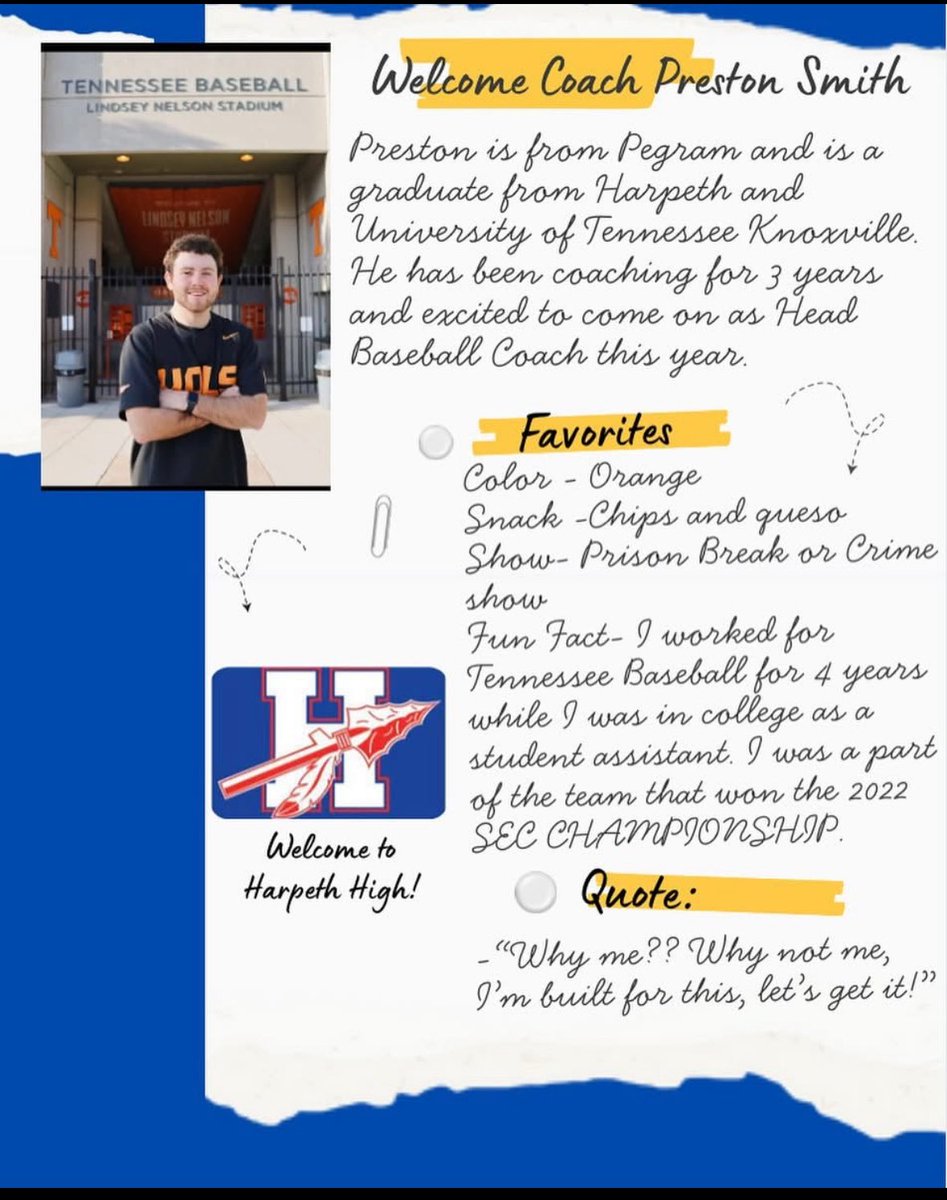 TENNESSEE BASEBALL
LINDSEY NELSON STADIUM
LINDSEY NELSON
VOLS
Welcome Coach Preston Smith
Preston is from Pegram and is a
graduate from Harpeth and
University of Tennessee Knoxville.
He has been coaching for 3 years
and excited to come on as Head
Baseball Coach this year.
Favorites
Color - Orange
Snack -Chips and queso
Show- Prison Break or Crime
show
Fun Fact- I worked for
Tennessee Baseball for 4 years
while I was in college as a
student assistant. I was a part
of the team that won the 2022
SEC CHAMPIONSHIP.
H
Welcome to
Harpeth High!
Quote:
-“Why me?? Why not me,
I’m built for this, let’s get it!”